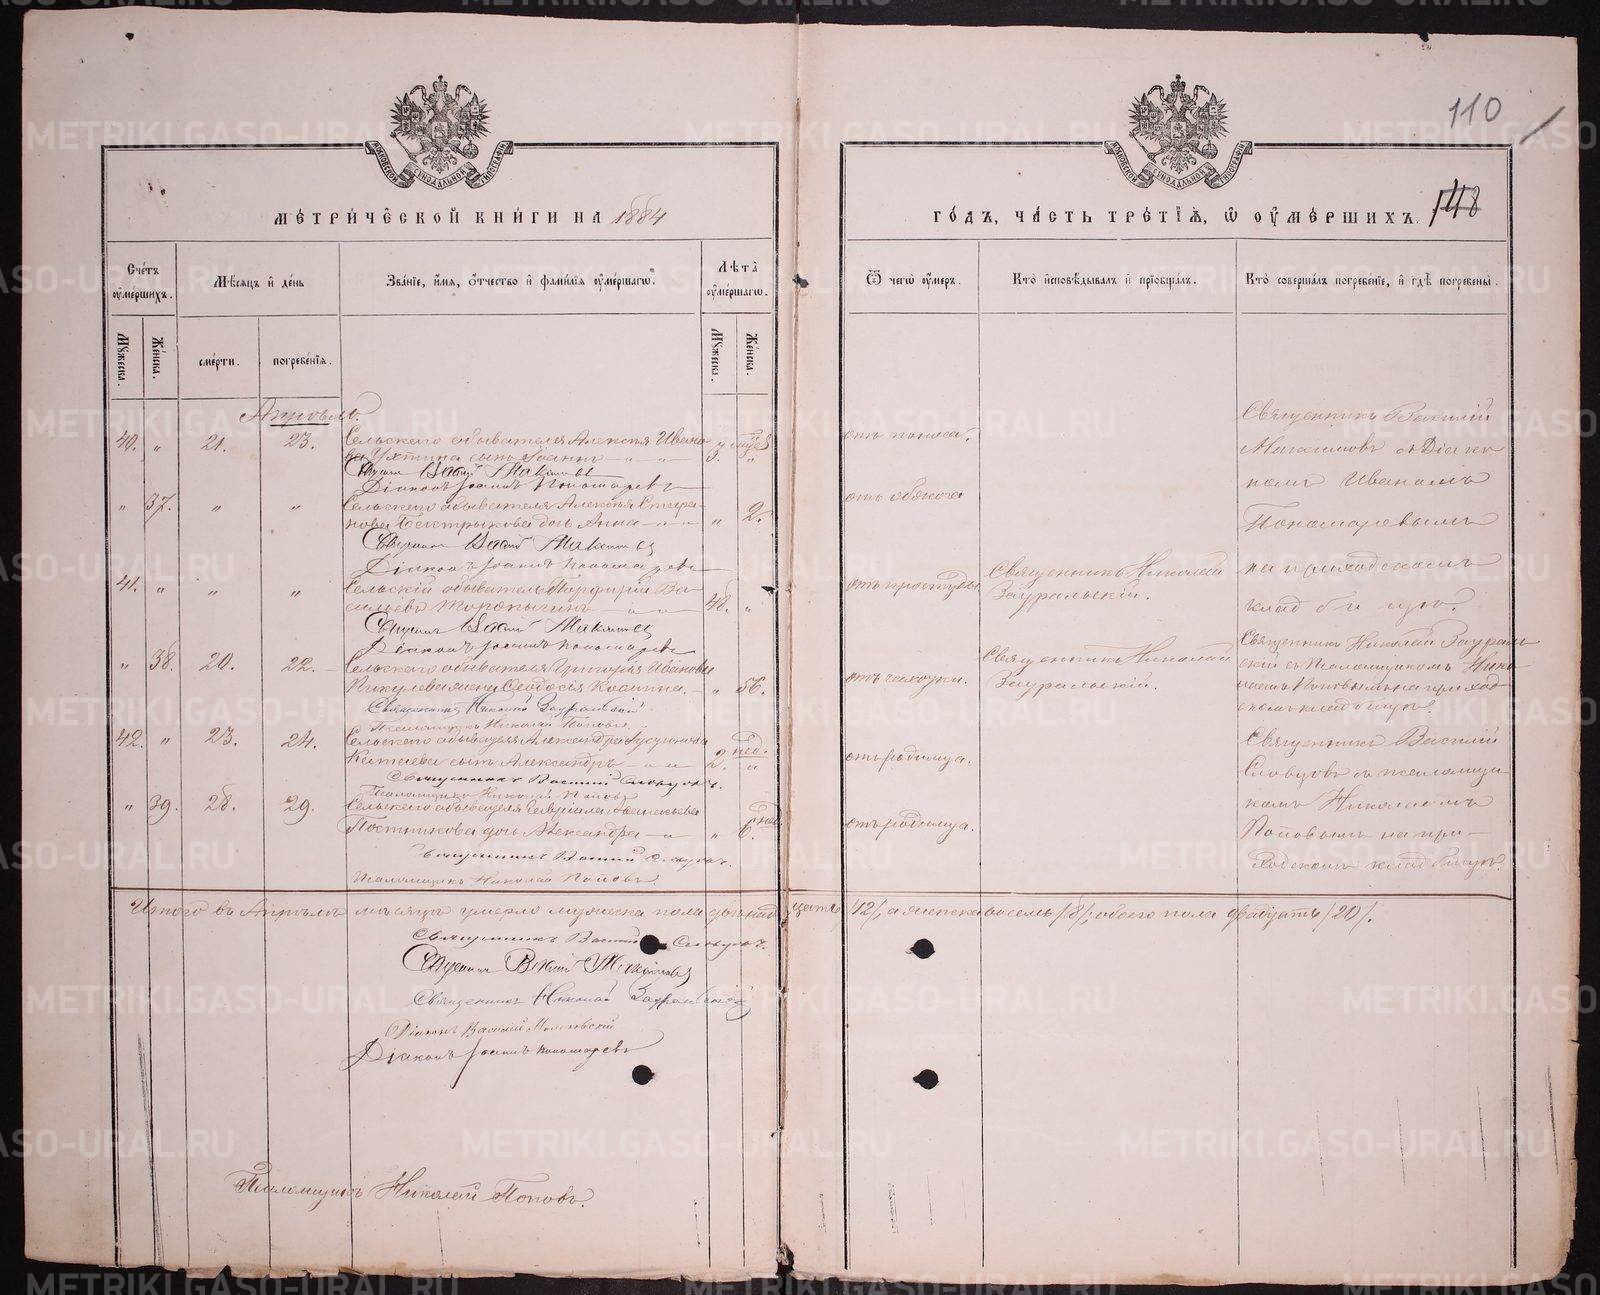 110
МЕТРИЧЕСКОЙ КНИГИ НА 1884
ГОДЪ, ЧАСТЬ ТРЕТІЯ, Ѿ ОУМЕРШИХЪ. 148
Счетъ оумершихъ.
Мѣсяцъ и день
Званіе, имя, отчество и фамилія оумершагω.
Лѣта оумершагω.
Ѿ чегω оумеръ.
Кто исповѣдывалъ и пріобщалъ.
Кто совершалъ погребеніе, и гдѣ погребены.
Мужеска.
Женска.
смерти.
погребенія.
Мужеска.
Женска.
Апрѣль.
40. " 21. 23. Сельскаго обывателя Алексѣя Ивано
ва Ухтина сынъ Іоаннъ 3. " отъ поноса.
Священникъ Василій Максимовъ
Діаконъ Іоаннъ Пономаревъ
" 37. " " Сельскаго обывателя Алексѣя Стефа-
нова дочь Анна " 2. отъ обжога
Священникъ Василій Максимовъ
Діаконъ Іоаннъ Пономаревъ
Священникъ Василій
Максимовъ съ Діако
номъ Иваномъ
Пономаревымъ
на приходскомъ
кладбищѣ.
41. " " " Сельскій обыватель Порфирій Ва
сильевъ Торопыгинъ 48. " отъ простуды Священникъ Николай
Зауральскій.
Священникъ Василій Максимовъ
Діаконъ Іоаннъ Пономаревъ
" 38. 20. 22. Сельскаго обывателя Григорія Иванова
Пикулева жена Ѳеодосія Космина " 56. отъ чахотки. Священникъ Николай
Зауральскій.
Священникъ Николай Зауральскій
Псаломщикъ Николай Поповъ
Священникъ Николай Заураль
скій съ Псаломщикомъ Нико-
лаемъ Поповымъ на приход
скомъ кладбищѣ.
42. " 23. 24. Сельскаго обывателя Александра
сынъ Александръ 2. нед. " отъ родимца.
Священникъ Василій Словцовъ.
Псаломщикъ Николай Поповъ
" 39. 28. 29. Сельскаго обывателя
Постникова дочь Александра " 6 нед. отъ родимца.
Священникъ Василій Словцовъ.
Псаломщикъ Николай Поповъ.
Священникъ Василій
Словцовъ съ псаломщи
комъ Николаемъ
Поповымъ на при-
ходскомъ кладбищѣ.
Итого въ Апрѣлѣ мѣсяцѣ умерло мужеска пола двѣнадцать /12/, а женска восемь /8/, обоего пола двадцать /20/.
Священникъ Василій Словцовъ.
Священникъ Василій Максимовъ
Священникъ Николай Зауральскій
Діаконъ Василій
Діаконъ Іоаннъ Пономаревъ
Псаломщикъ Николай Поповъ.
METRIKI.GASO-URAL.RU